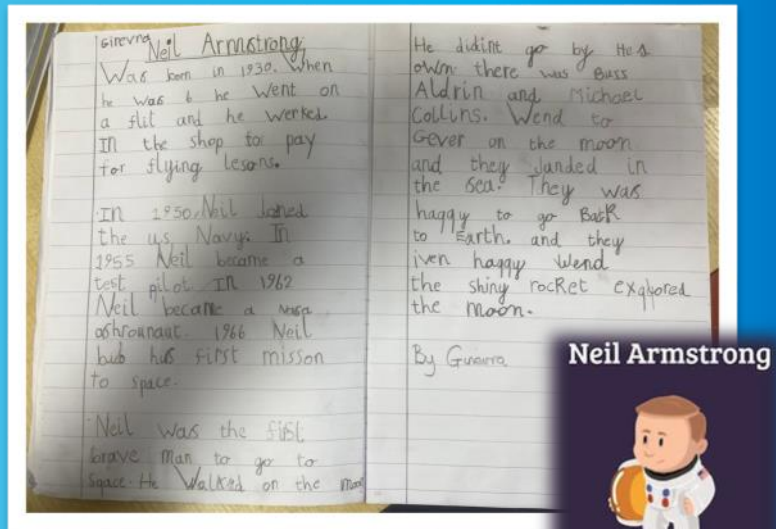 Ginevra
Neil Armstrong
Was born in 1930. When
he was 6 he went on
a flit and he werked
In the shop to pay
for flying lesons.
In 1950 Neil Joined
the us Navy. In
1955 Neil became a
test pilot In 1962
Neil became a Nasa
ashrounaut. 1966 Neil
bub his first misson
to space.
Neil was the first
brave man to go to
space. He Walked on the moon
He didint go by His
own there was Buss
Aldrin and Michael
Collins. Wend to
Gever on the moon
and they landed in
the sea. They was
haqqy to go Back
to Earth. and they
iven haqqy wend
the shiny rocRet exqlored
the moon.
By Ginevra
Neil Armstrong